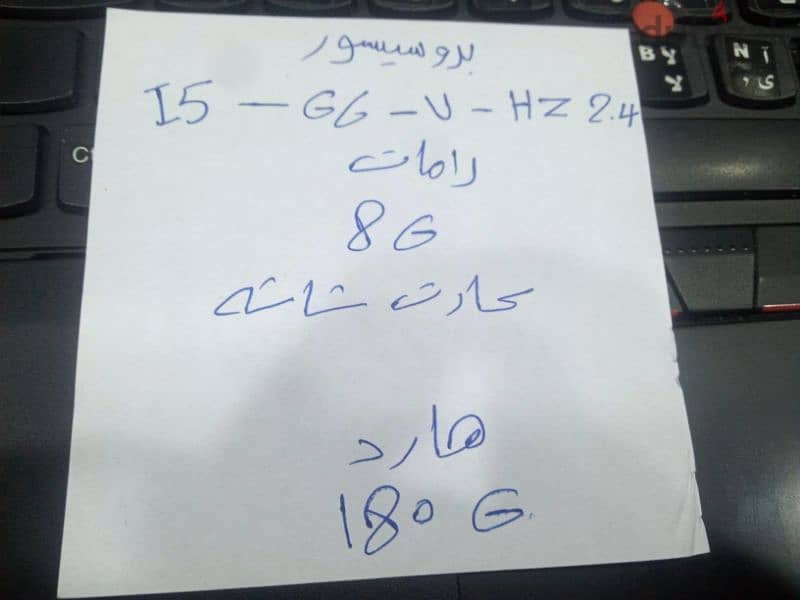 بروسيسور
I5 — G6 - U - HZ 2.4
رامات
8 G
كارت شاشه
هارد
180 G.
B لا
لا
N آ
ى